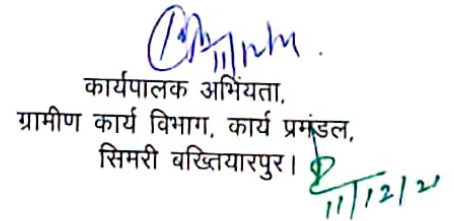 11/12/21.
कार्यपालक अभियंता,
ग्रामीण कार्य विभाग, कार्य प्रमंडल,
सिमरी बख्तियारपुर।
11/12/21